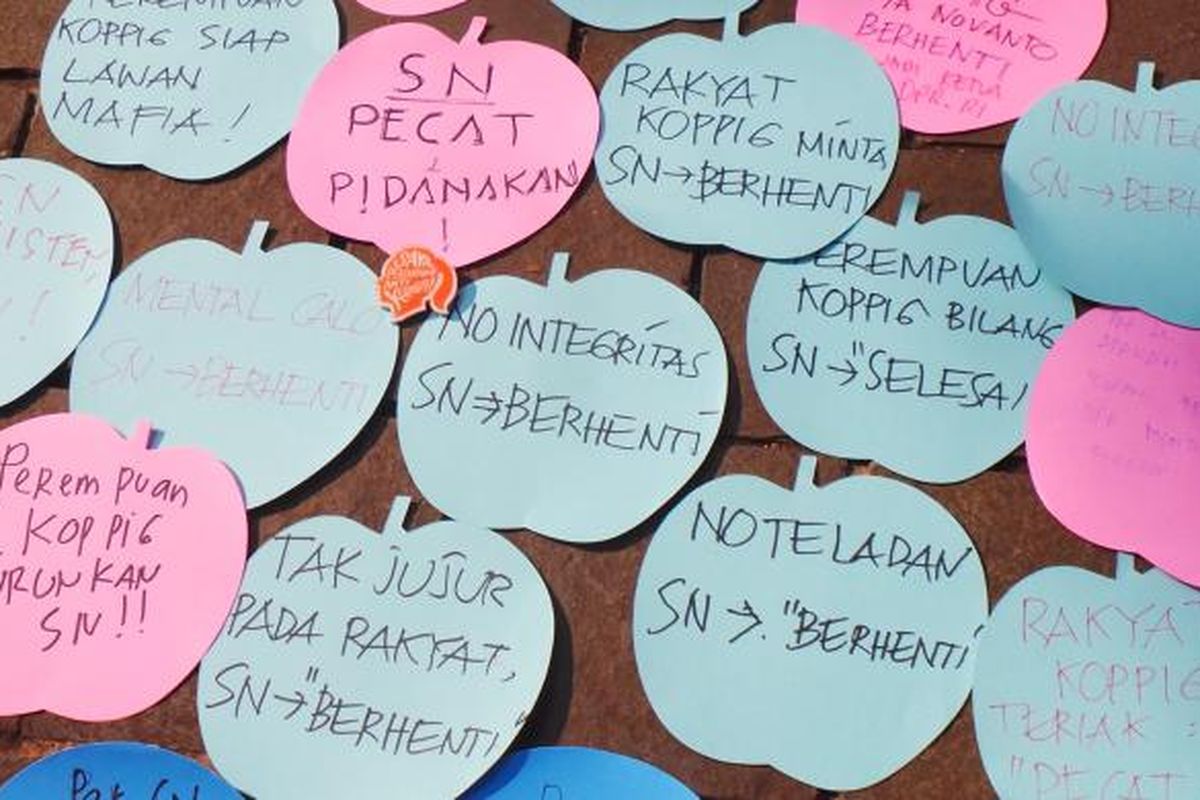 PEREMPUAN
KOPPIG SIAP
LAWAN
MAFIA !
SN
PECAT
&
PIDANAKAN
!
RAKYAT
KOPPIG MINTA
SN → BERHENTI
NOVANTO
BERHENTI
JADI KETUA
DPR. RI
NO INTEG
SN → BERH
SN
!
MENTAL CALO
SN → BERHENTI
NO INTEGRITAS
SN → BERHENTI
EREMPUAN
KOPPIG BILANG
SN → "SELESAI
Perempuan
KOPPIG
URUNKAN
SN !!
TAK JUJUR
PADA RAKYAT,
SN → "BERHENTI"
NO TELADAN
SN → "BERHENTI
RAKYAT
KOPPIG
TERIAK :
"PECAT
Pak SN